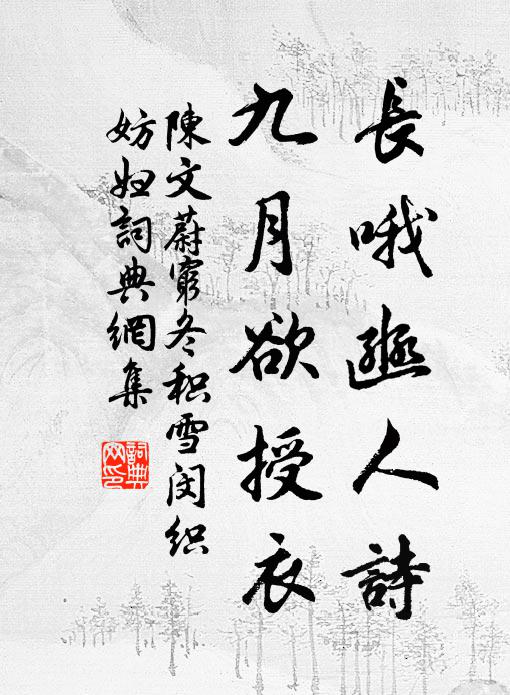 長哦豳人詩
九月欲授衣
陳文蔚窮冬积雪闵织
妨妇詞典網集
詞典
网印